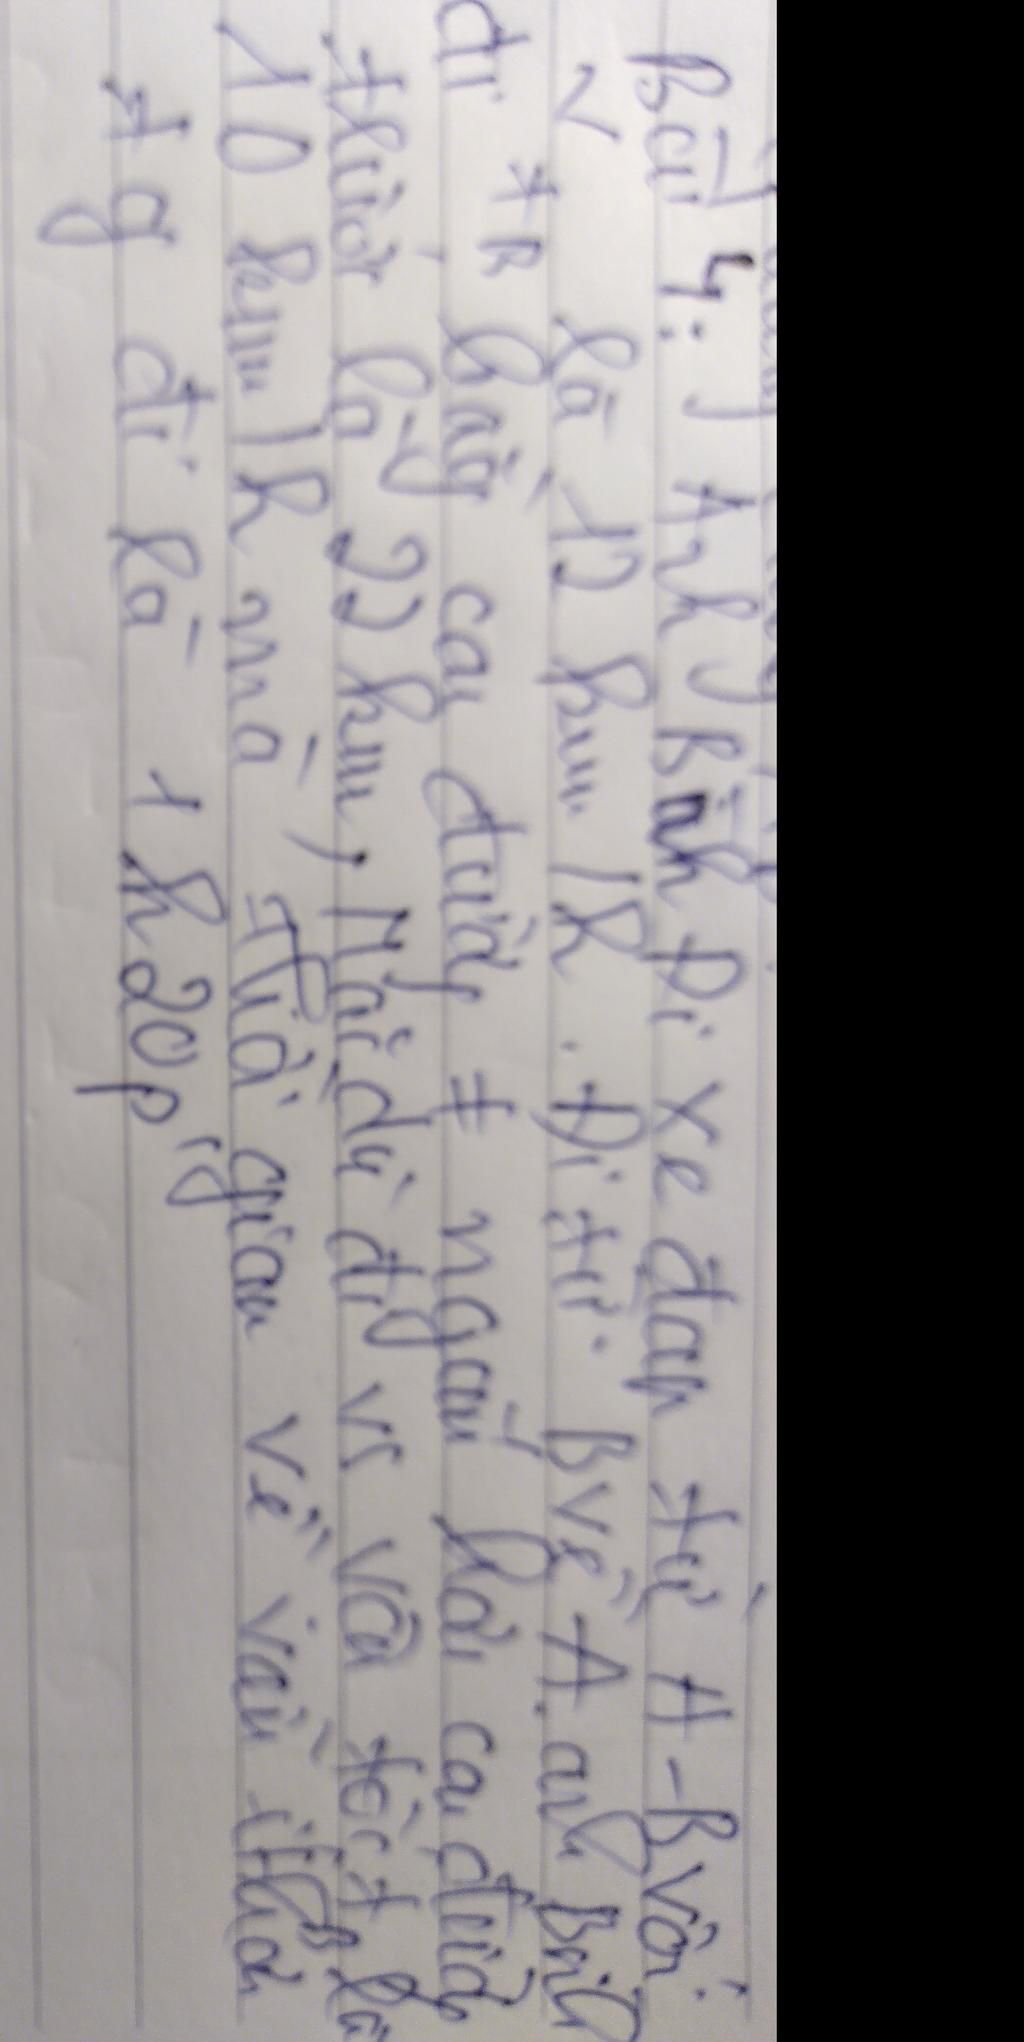 Bài 4: Anh Bình Đi xe đạp từ A-B với
v là 12 km/h. Đi từ B về A. anh Bình
đi trên con đường ≠ ngắn hơn con đường
trước là 22 km, Mặc dù đi vs vận tốc là
10 km/h mà thời gian về vẫn ít hơn
tg đi là 1h20p'